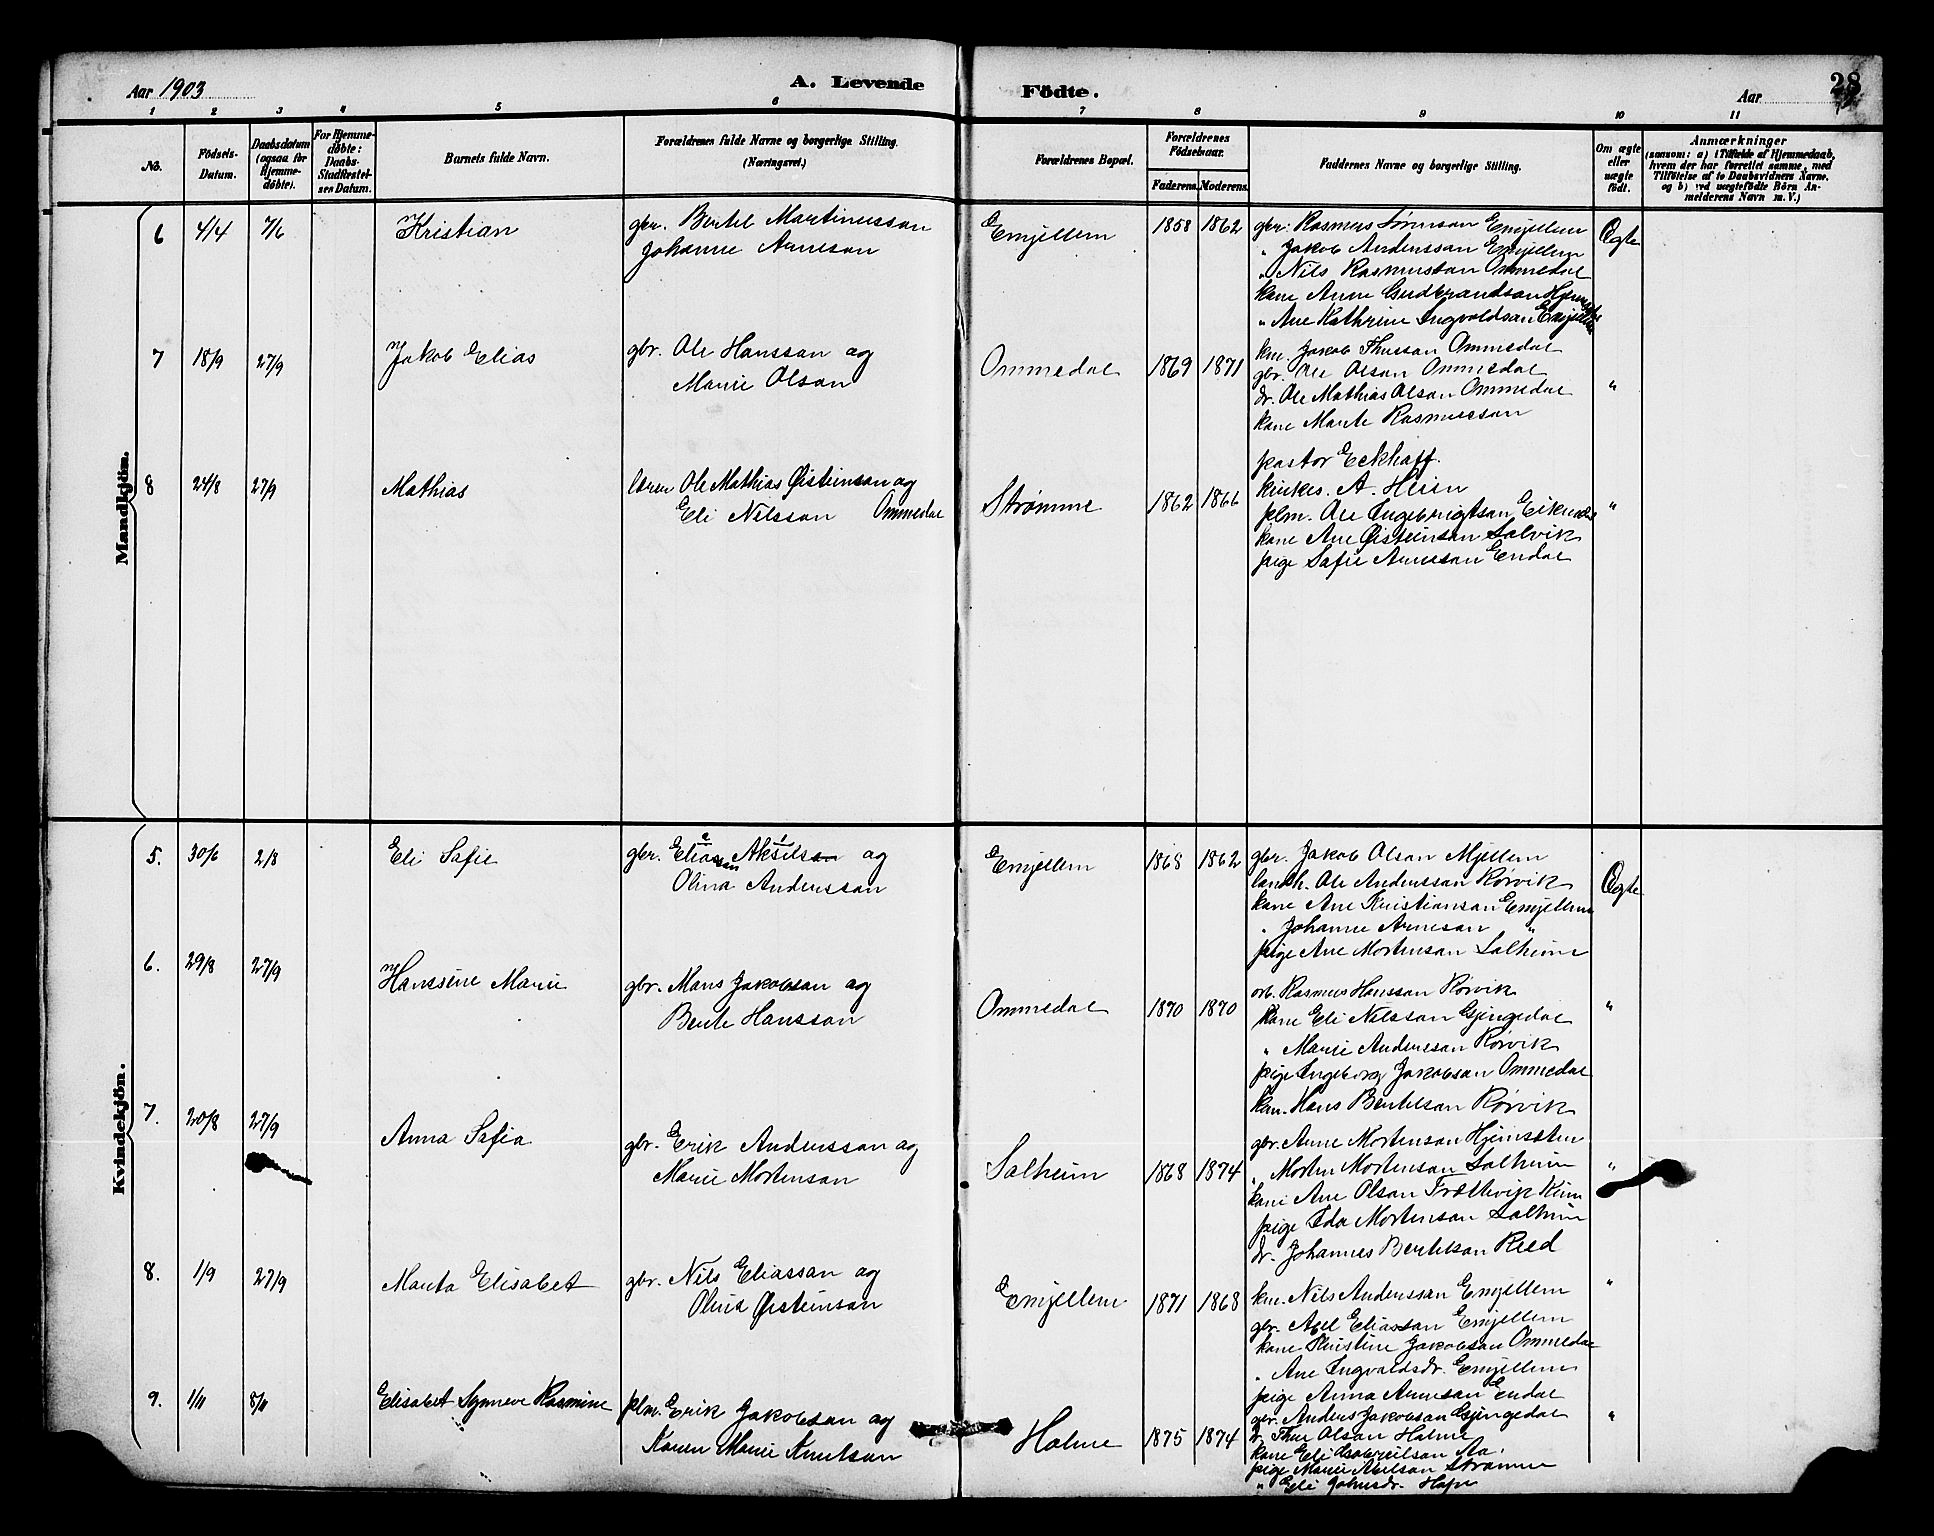 Aar 1903
A. Levende Födte.
Aar
28
1 2 3 4 5 6 7 8 9 10 11
No.
Födsels-Datum.
Daabsdatum (ogsaa for Hjemme-døbte).
For Hjemme-døbte: Daabs-Stadfæstel-sen Datum.
Barnets fulde Navn.
Forældrenes fulde Navne og borgerlige Stilling. (Næringsvei.)
Forældrenes Bopæl.
Forældrenes Födselsaar.
Faderens. Moderens.
Faddernes Navne og borgerlige Stilling.
Om ægte eller uægte födt.
Anmærkninger
(saasom: a) i Tilfælde af Hjemmedaab, hvem der har forrettet samme, med Tilföielse af to Daabsvidners Navne, og b) ved uægtefödte Börn An-melderens Navn m. V.)
Mandkjön.
6 4/4 7/6 Kristian
gbr. Bertel Martinussan
Johanne Arnesan
Emjellem 1858 1862
gbr. Rasmus Emjellem
" Jakob Anderssan Emjellem
" Nils Rasmussan Ommedal
kone Anne Gudbrandsan
" Ane Kathrine Ingvoldsan Emjellem
Ægte
7 18/9 27/9 Jakob Elias
gbr. Ole Hanssan og
Marie Olsan
Ommedal 1869 1871
Jakob Ommedal
gbr. Ole Olsan Ommedal
dr. Ole Mathias Olsan Ommedal
kone Marite Rasmussan
"
8 24/8 27/9 Mathias
lærer Ole Mathias Øisteinsan og
Eli Nilssan Ommedal
Strømme 1862 1866
pastor Eckhoff.
kirkes. A. Heien
plm. Ole Ingebrigtsan Eiknes
kone Ane Øisteinsan Solvik
pige Safie Arnesan Endal
"
Kvindekjön.
5. 30/6 2/8 Eli Safie
gbr. Eliassan Aksel og
Olina Anderssan
Emjellem 1868 1862
gbr. Jakob Olsan Mjellem
landh. Ole Anderssan Rørvik
kone Ane Kristiansan Emjellem
" Johanne Arnesan "
pige Ane Mortensan Solheim
Ægte
6. 29/8 27/9 Hanssine Marie
gbr. Mons Jakobsan og
Berte Hanssan
Ommedal 1870 1870
Rasmus Hanssan Rørvik
kone Eli Nilssan Gjengedal
" Marie Anderssan Rørvik
pige Ingeborg Jakobsan Ommedal
Hans Bertelsan Rørvik
"
7. 20/8 27/9 Anna Safia
gbr. Erik Anderssan og
Marie Mortensan
Solheim 1868 1874
gbr. Arne Mortensan
" Morten Mortensan Solheim
kone Ane Olsan Trættevik
pige Ida Mortensan Solheim
dr. Johannes Bertelsan Reed
"
8. 1/9 27/9 Marita Elisabet
gbr. Nils Eliassan og
Olina Øisteinsan
Emjellem 1871 1868
Nils Anderssan Emjellem
gbr. Abel Eliassan Emjellem
kone Kristine Jakobsan Ommedal
" Ane Ingvaldsdr. Emjellem
pige Anna Arnesan Endal
"
9. 1/11 8/11 Elisabet Synneve Rasmine
plm. Erik Jakobsan og
Karen Marie Knutsan
Holme 1875 1874
gbr. Anders Jakobsan Gjengedal
dr. Thue Olsan Holme
kone Eli Aa.
pige Marie Abelsan Strømme
" Eli Johnsdr.
"